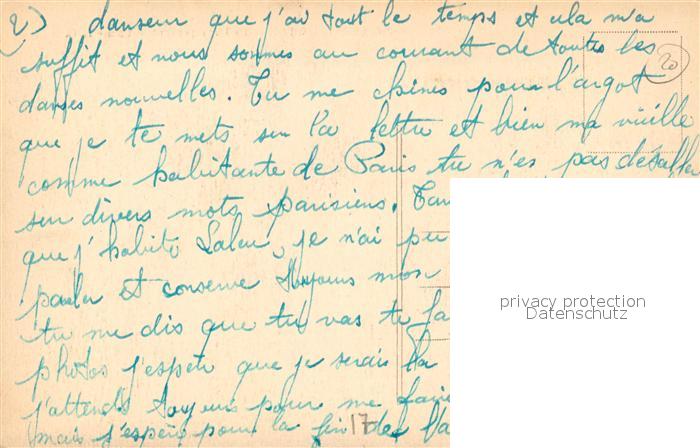 2) danseur que j'ai tout le temps et cela m'a
suffit et nous sommes au courant de toutes les
danses nouvelles. Tu me chines pour l'argot
20
que je te mets sur la lettre et bien ma vieille
comme habitante de Paris tu n'es pas
sur divers mots parisiens.
que j'habite je n'ai pu
parler et conserve toujours mon
privacy protection
Datenschutz
tu me dis que tu vas te
photos j'espère que je serais la
j'attends toujours pour me faire
mais j'espère pour la fin 17 des